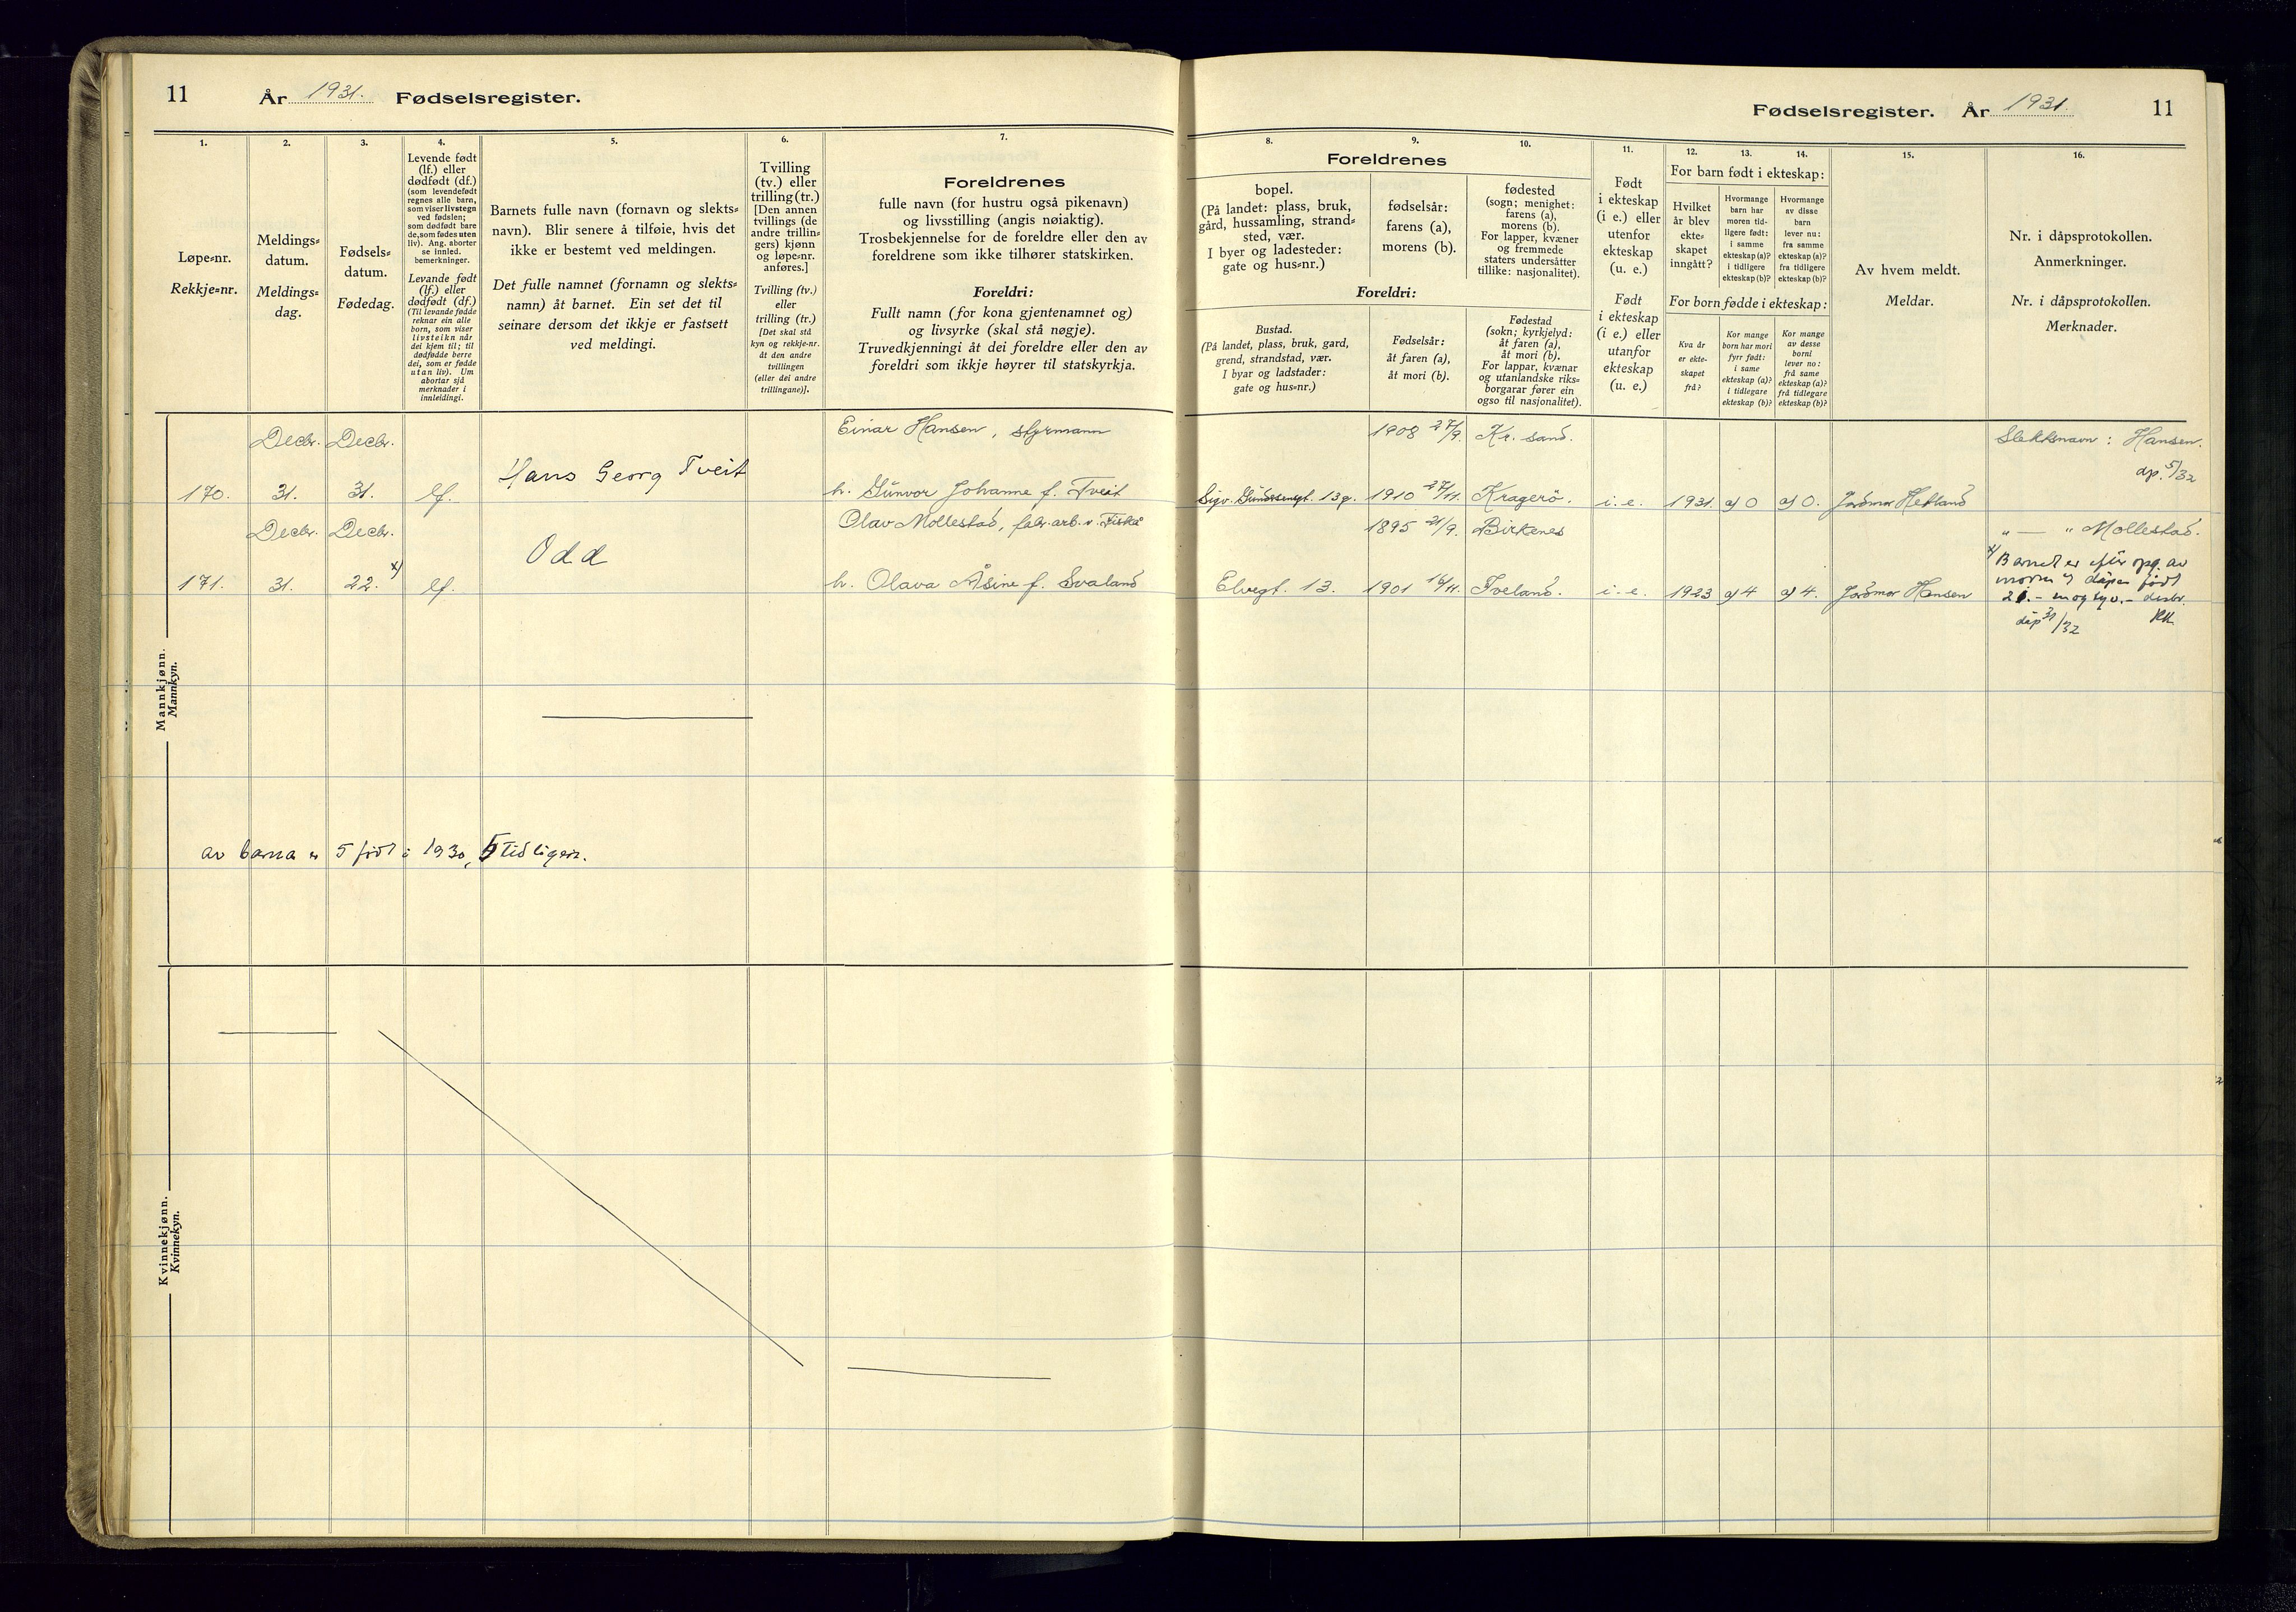 11
År 1931. Fødselsregister.
1.
Løpe=nr.
Rekkje=nr.
2.
Meldings=
datum.
Meldings=
dag.
3.
Fødsels=
datum.
Fødedag.
4.
Levende født
(lf.) eller
dødfødt (df.)
(som levendefødt
regnes alle barn,
som viser livstegn
ved fødslen;
som dødfødt bare
de, som fødes uten
liv). Ang. aborter
se innled.
bemerkninger.
Levande født
(lf.) eller
dødfødt (df.)
(Til levande fødde
reknar ein alle
born, som viser
livsteikn når
dei kjem til; til
dødfødde berre
dei, som er fødde
utan liv). Um
abortar sjå
merknader i
innleidingi.
5.
Barnets fulle navn (fornavn og slekts=
navn). Blir senere å tilføie, hvis det
ikke er bestemt ved meldingen.
Det fulle namnet (fornamn og slekts=
namn) åt barnet. Ein set det til
seinare dersom det ikkje er fastsett
ved meldingi.
6.
Tvilling
(tv.) eller
trilling (tr.)
[Den annen
tvillings (de
andre trillin=
gers) kjønn
og løpe=nr.
anføres.]
Tvilling (tv.)
eller
trilling (tr.)
[Det skal stå
kyn og rekkje=nr.
åt den andre
tvillingen
(eller dei andre
trillingane)].
7.
Foreldrenes
fulle navn (for hustru også pikenavn)
og livsstilling (angis nøiaktig).
Trosbekjennelse for de foreldre eller den av
foreldrene som ikke tilhører statskirken.
Foreldri:
Fullt namn (for kona gjentenamnet og)
og livsyrke (skal stå nøgje).
Truvedkjenningi åt dei foreldre eller den av
foreldri som ikkje høyrer til statskyrkja.
Fødselsregister. År 1931. 11
8.
Foreldrenes
bopel.
(På landet: plass, bruk,
gård, hussamling, strand=
sted, vær.
I byer og ladesteder:
gate og hus=nr.)
Foreldri:
Bustad.
(På landet, plass, bruk, gard,
grend, strandstad, vær.
I byar og ladstader:
gate og hus=nr.)
9.
fødselsår:
farens (a),
morens (b).
Fødselsår:
åt faren (a),
åt mori (b).
10.
fødested
(sogn; menighet:
farens (a),
morens (b).
For lapper, kvæner
og fremmede
staters undersåtter
tillike: nasjonalitet).
Fødestad
(sokn; kyrkjelyd:
åt faren (a),
åt mori (b).
For lappar, kvænar
og utanlandske riks=
borgarar fører ein
ogso til nasjonalitet).
11.
Født
i ekteskap
(i e.) eller
utenfor
ekteskap
(u. e.)
Født
i ekteskap
(i e.) eller
utanfor
ekteskap
(u. e.)
12. 13. 14.
For barn født i ekteskap:
Hvilket
år blev
ekte=
skapet
inngått?
Hvormange
barn har
moren tid-
ligere født:
i samme
ekteskap (a)?
i tidligere
ekteskap (b)?
Hvormange
av disse
barn
lever nu:
fra samme
ekteskap (a)?
fra tidligere
ekteskap (b)?
For born fødde i ekteskap:
Kva år
er ekte-
skapet
frå?
Kor mange
born har mori
fyrr født:
i same
ekteskap (a)?
i tidlegare
ekteskap (b)?
Kor mange
av desse
borni
lever no:
frå same
ekteskap (a)?
frå tidlegare
ekteskap (b)?
15.
Av hvem meldt.
Meldar.
16.
Nr. i dåpsprotokollen.
Anmerkninger.
Nr. i dåpsprotokollen.
Merknader.
Mannkjønn.
Mannkyn.
Decbr. Decbr. Einar Hansen, styrmann 1908 27/9. Kr. sand. Slektsnavn: Hansen.
Hans Georg Tveit dp. 5/32
170. 31. 31. lf. h. Gunvor Johanne f. Tveit Sigv. Gundersensgt. 13 g. 1910 27/11. Kragerö. i. e. 1931. a) 0 a) 0. Jordmor Hetland
Decbr. Decbr. Olav Mollestad, fabr. arb. v. Fiskå 1895 21/9. Birkenes " — " Mollestad.
Odd
171. 31. 22. x) lf. h. Olava Åsine f. Svaland Elvegt. 13. 1901 16/11. Iveland. i. e. 1923 a) 4 a) 4. Jordmor Hansen
x) Barnet er efter opg. av
moren v dåpen født
21. - en og tyv. - desbr.
dåp 31/32
av barna er 5 født i 1930, 5 tidligere.
Kvinnekjønn.
Kvinnekyn.